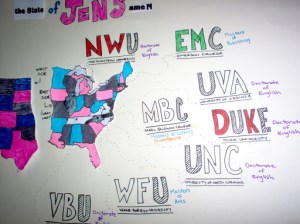 the State of JENS ame M
NWU
NORTHWESTERN UNIVERSITY
Doctorate
of
English
EMC
EMERSON COLLEGE
Masters in
Publishing
UVA
UNIVERSITY OF VIRGINIA
Doctorate
of English
MBC
MARY BALDWIN COLLEGE
DUKE
DUKE UNIVERSITY
Doctorate
of English
UNC
UNIVERSITY OF NORTH CAROLINA
Doctorate of
English
WFU
WAKE FOREST UNIVERSITY
Masters
of
Arts
VBU
Doctorate